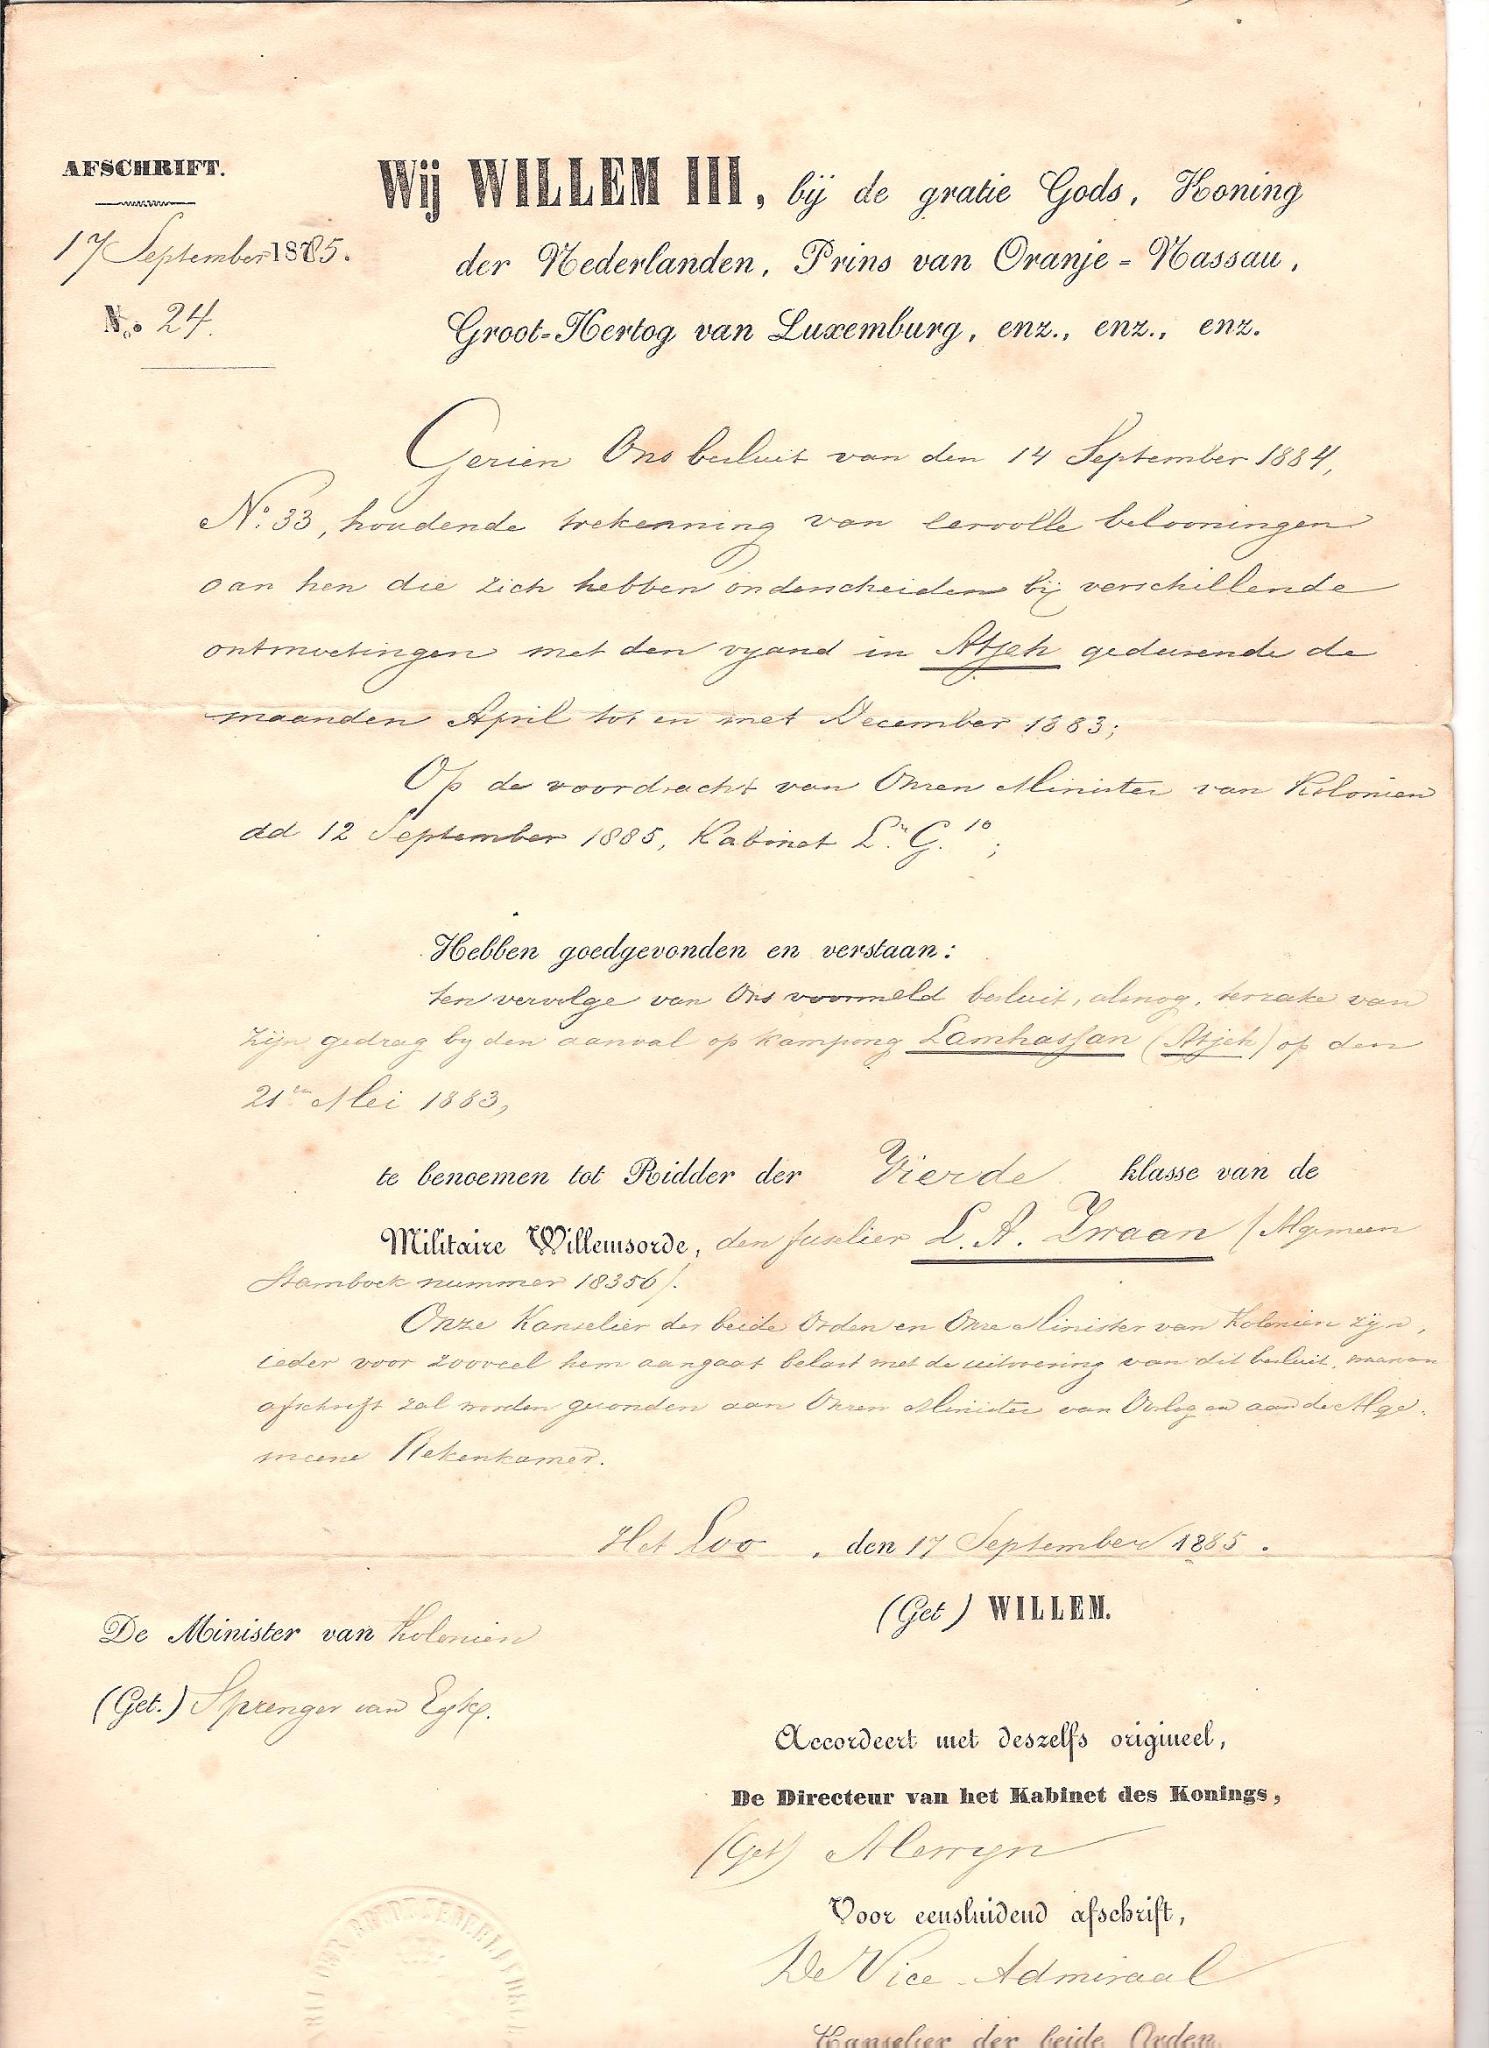 AFSCHRIFT.
17 September 1885.
No. 24.
Wij WILLEM III, bij de gratie Gods, Koning
der Nederlanden, Prins van Oranje-Nassau,
Groot-Hertog van Luxemburg, enz., enz., enz.
Gezien Ons besluit van den 14 September 1884,
No. 33, houdende toekenning van eervolle belooningen
aan hen die zich hebben onderscheiden bij verschillende
ontmoetingen met den vyand in Atjeh gedurende de
maanden April tot en met December 1883;
Op de voordracht van Onzen Minister van Kolonien
dd 12 September 1885, Kabinet Lr. G. 10;
Hebben goedgevonden en verstaan:
ten vervolge van Ons voormeld besluit, alsnog, terzake van
zijn gedrag by den aanval op kampong Lamhassan (Atjeh) op den
21en Mei 1883,
te benoemen tot Ridder der Vierde klasse van de
Militaire Willemsorde, den fuselier L. A. Zwaan (Algemeen
Stamboek nummer 18356).
Onze Kanselier der beide Orden en Onze Minister van Kolonien zijn,
ieder voor zooveel hem aangaat belast met de uitvoering van dit besluit, waarvan
afschrift zal worden gezonden aan Onzen Minister van Oorlog en aan de Alge-
meene Rekenkamer.
Het Loo, den 17 September 1885.
(Get) WILLEM.
De Minister van Kolonien
(Get.) Sprenger van Eyk.
Accordeert met deszelfs origineel,
De Directeur van het Kabinet des Konings,
(Get) Alewyn
Voor eensluidend afschrift,
De Vice-Admiraal
Kanselier der beide Orden